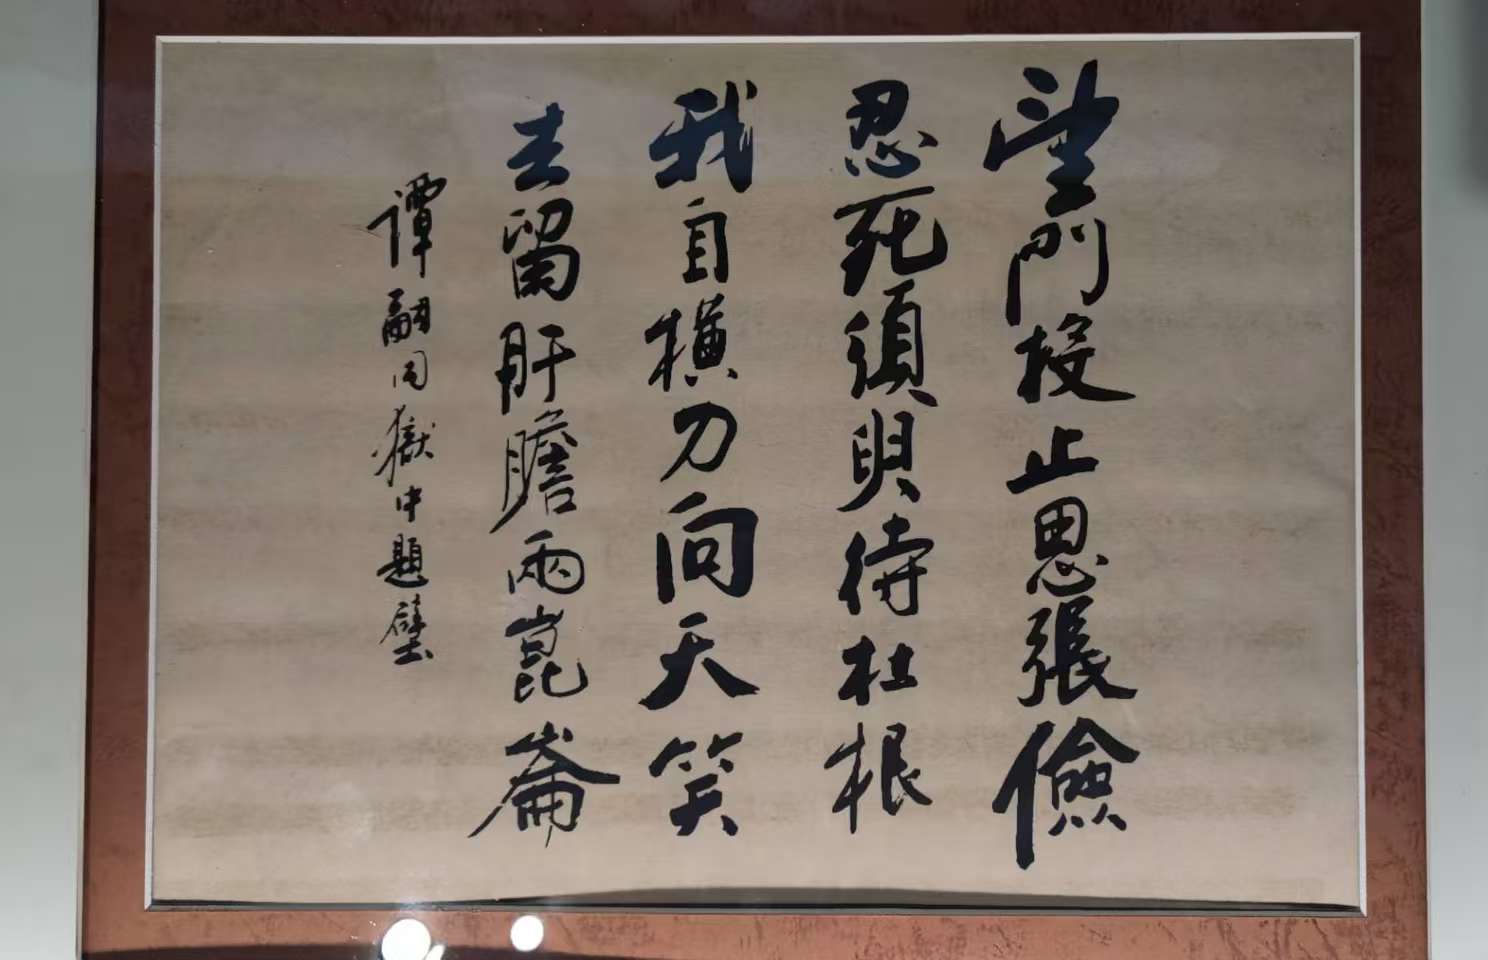 望門投止思張儉
忍死須臾待杜根
我自横刀向天笑
去留肝膽兩崑崙
譚嗣同獄中題壁